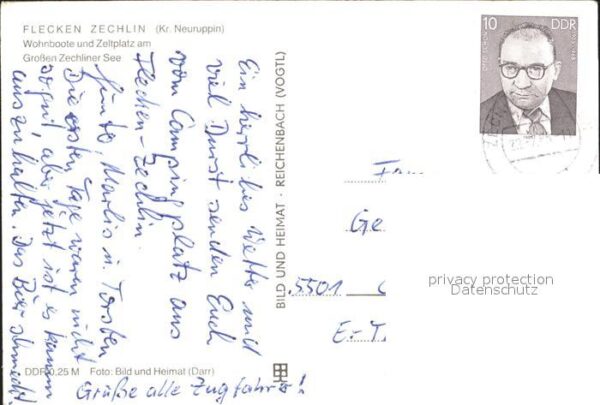 FLECKEN ZECHLIN (Kr. Neuruppin)
Wohnboote und Zeltplatz am
Großen Zechliner See
Ein herrliches Wetter und
viel Durst senden Euch
vom Campingplatz aus
Flecken-Zechlin
Marlis u. Torsten
Die ersten Tage waren nicht
so gut, aber jetzt ist es kaum
auszuhalten. Das Bier schmeckt!
Grüße alle Zugfahrer!
DDR 0,25 M Foto: Bild und Heimat (Darr)
BILD UND HEIMAT · REICHENBACH (VOGTL)
10 DDR
Fam
Ge
5501
E.-T.
privacy protection
Datenschutz